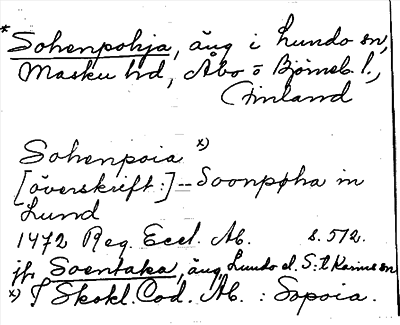 * Sohenpohja, äng i Lundo sn,
Masku hd, Åbo o Björneb. l.,
Finland
Sohenpoia x)
[överskrift:] -- Soonpøha in
Lund
1472 Reg. Eccl. Ab. s. 512.
jfr Soentaka, äng, Lundo el. S:t Karins sn
x) I Skokl. Cod. Ab. : Sopoia.